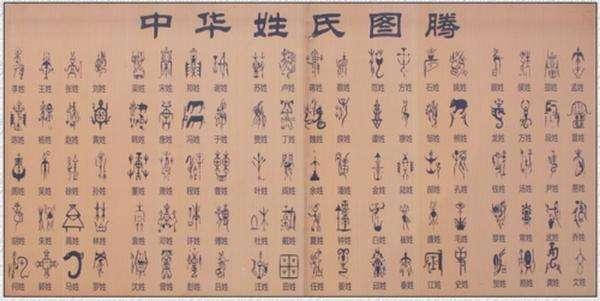 中华姓氏图腾
李姓 王姓 张姓 刘姓 梁姓 宋姓 郑姓 谢姓 苏姓 卢姓 蒋姓 蔡姓 范姓 方姓 石姓 姚姓 侯姓 邵姓 孟姓
陈姓 杨姓 赵姓 黄姓 韩姓 唐姓 冯姓 于姓 贾姓 丁姓 魏姓 薛姓 谭姓 邹姓 熊姓 龙姓 万姓 段姓 雷姓
周姓 吴姓 徐姓 孙姓 董姓 程姓 曹姓 叶姓 阎姓 余姓 潘姓 金姓 陆姓 郝姓 孔姓 钱姓 汤姓 尹姓
胡姓 朱姓 高姓 林姓 袁姓 邓姓 许姓 傅姓 杜姓 戴姓 夏姓 钟姓 白姓 崔姓 毛姓 黎姓 常姓 武姓 乔姓
何姓 郭姓 马姓 罗姓 沈姓 曾姓 彭姓 吕姓 汪姓 田姓 任姓 姜姓 邱姓 秦姓 江姓 史姓 贺姓 龚姓 文姓